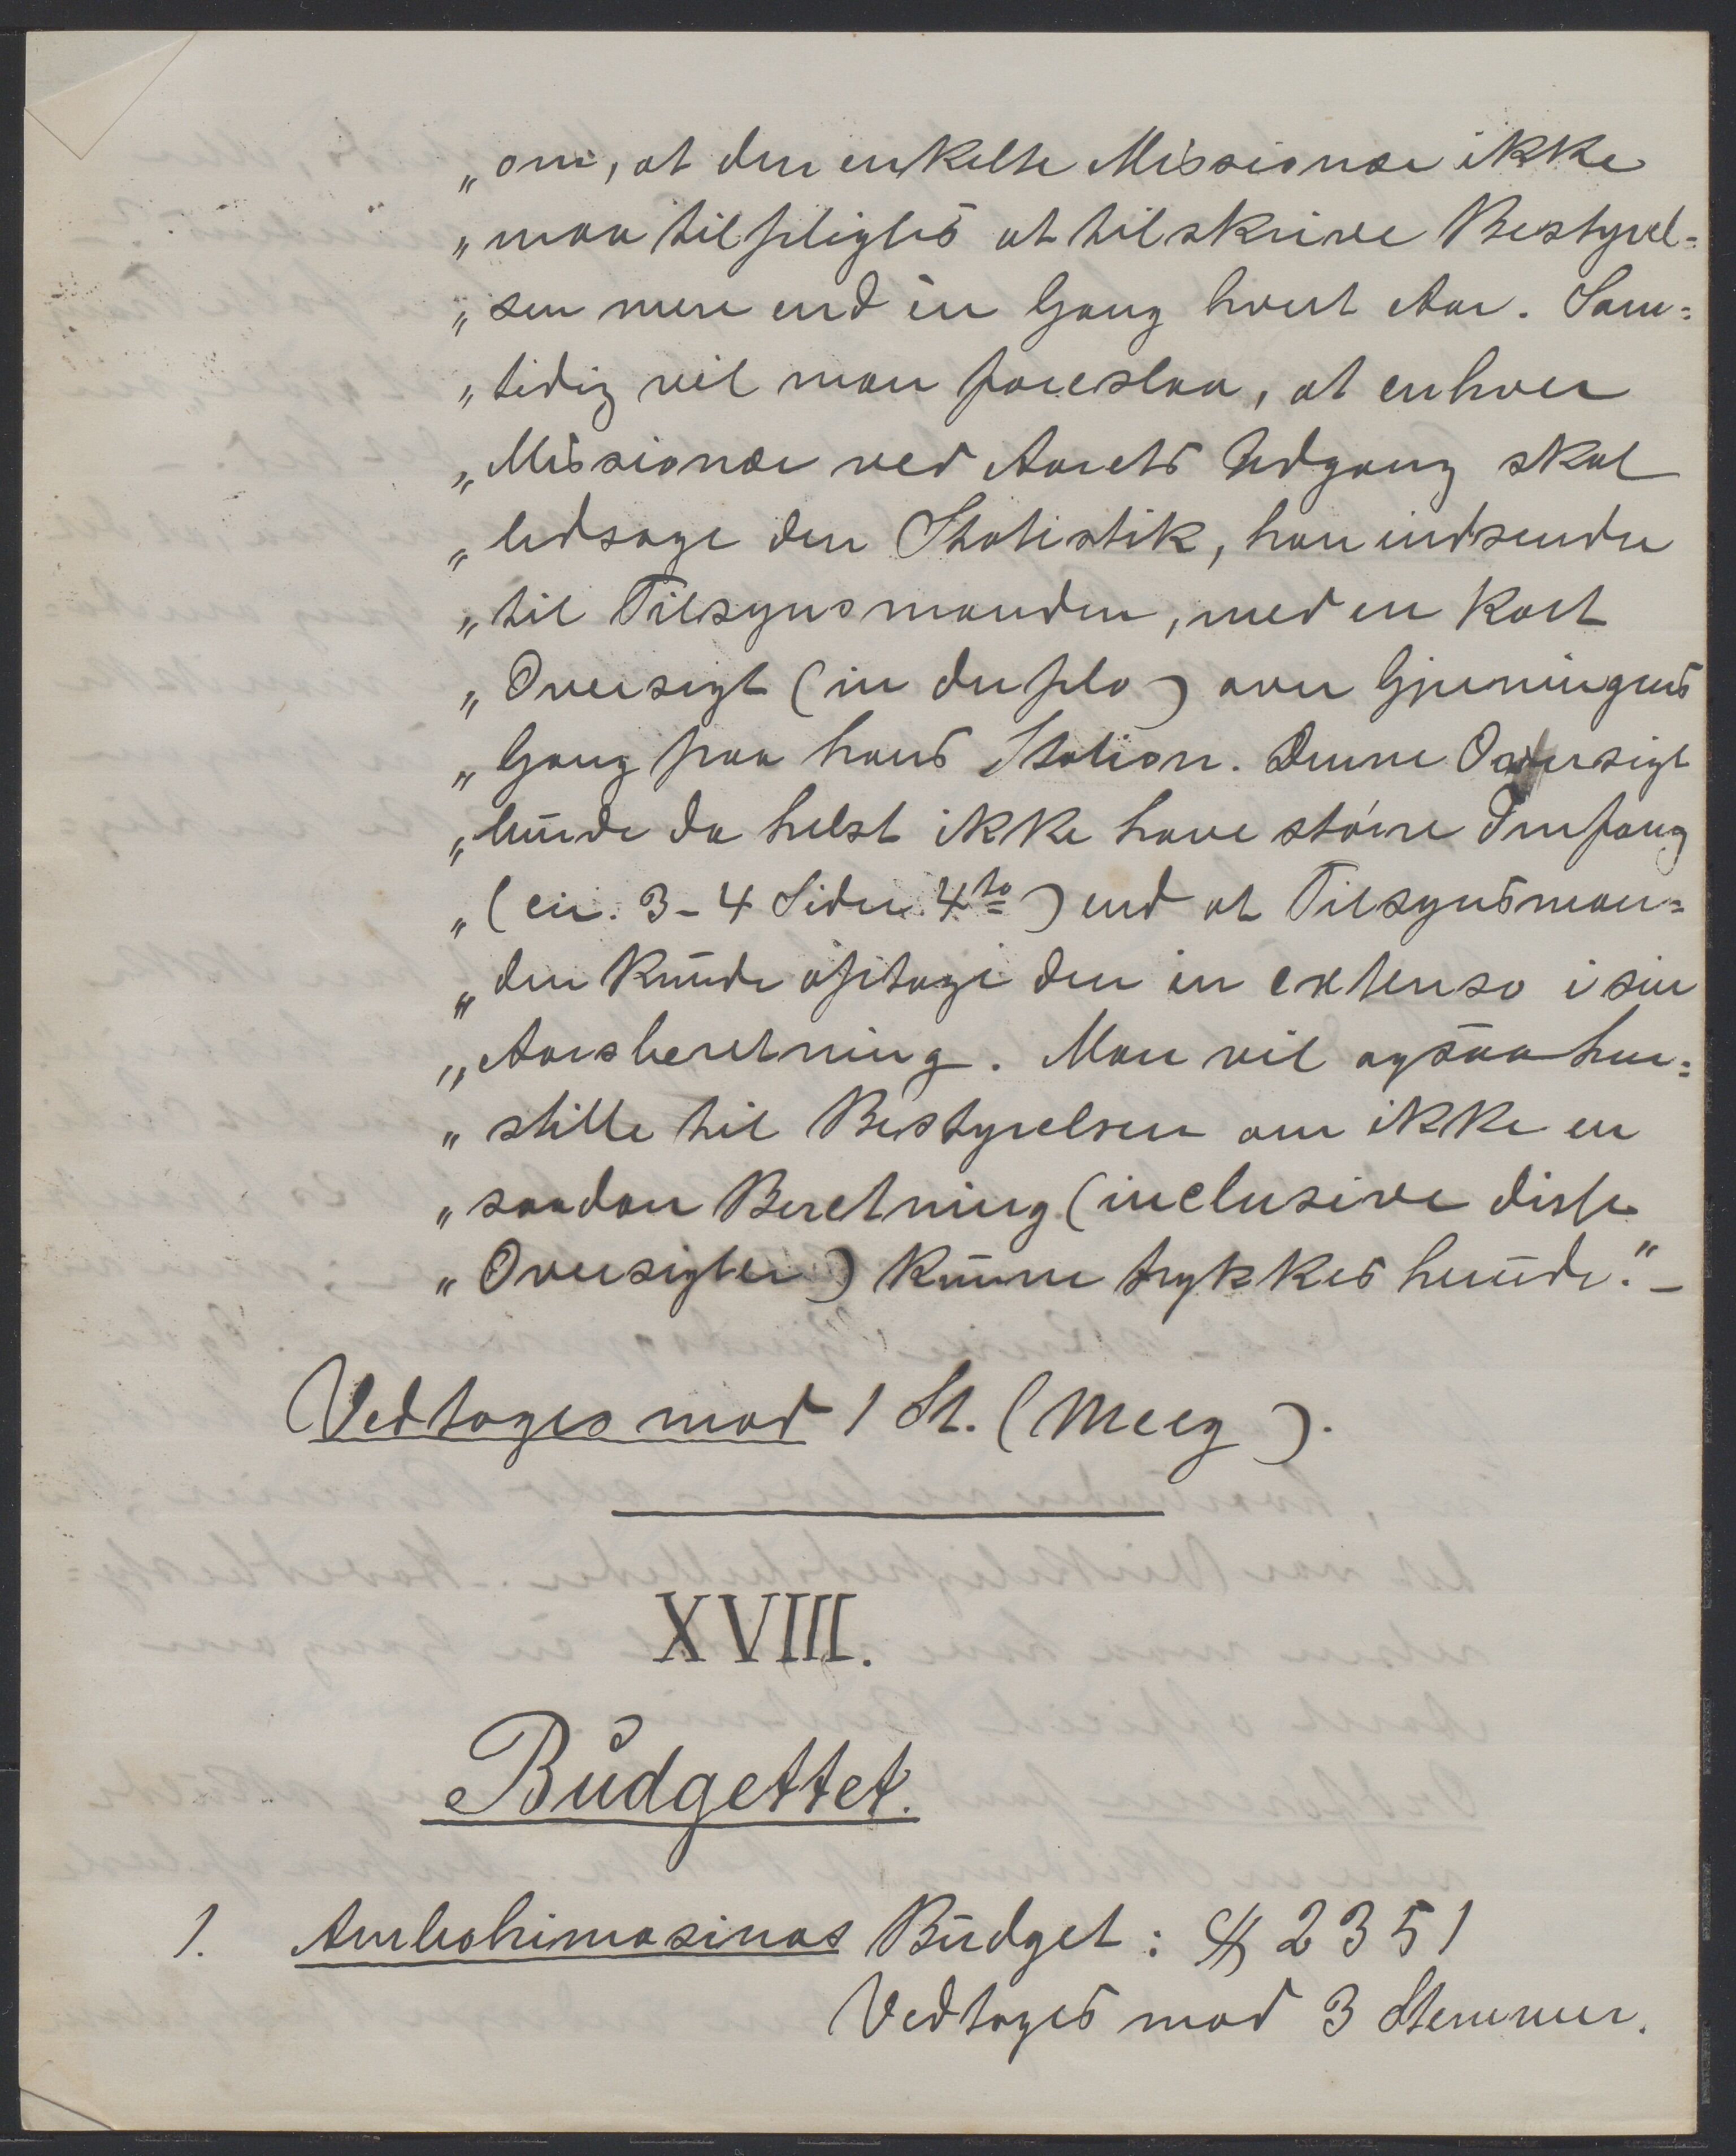 „om, at den enkelte Missionær ikke
„maa tilpligtes at tilskrive Bestyrel=
„sen mere end én Gang hvert Aar. Sam=
„tidig vil man foreslaa, at enhver
„Missionær ved Aarets Udgang skal
„ledsage den Statistik, han indsender
„til Tilsynsmanden, med en kort
„Oversigt (in duplo) over Gjerningens
„Gang paa hans Station. Denne Oversigt
„burde da helst ikke have større Omfang
„(cir. 3-4 Sider 4to) end at Tilsynsman=
„den kunde optage den in extenso i sin
„Aarsberetning. Man vil ogsaa hen=
„stille til Bestyrelsen om ikke en
„saadan Beretning (inclusive disse
„Oversigter) kunne trykkes herude." –
Vedtages mod 1 St. (Meeg).
XVIII.
Budgettet.
1. Ambohimasinas Budget: $ 2351
Vedtages mod 3 Stemmer.